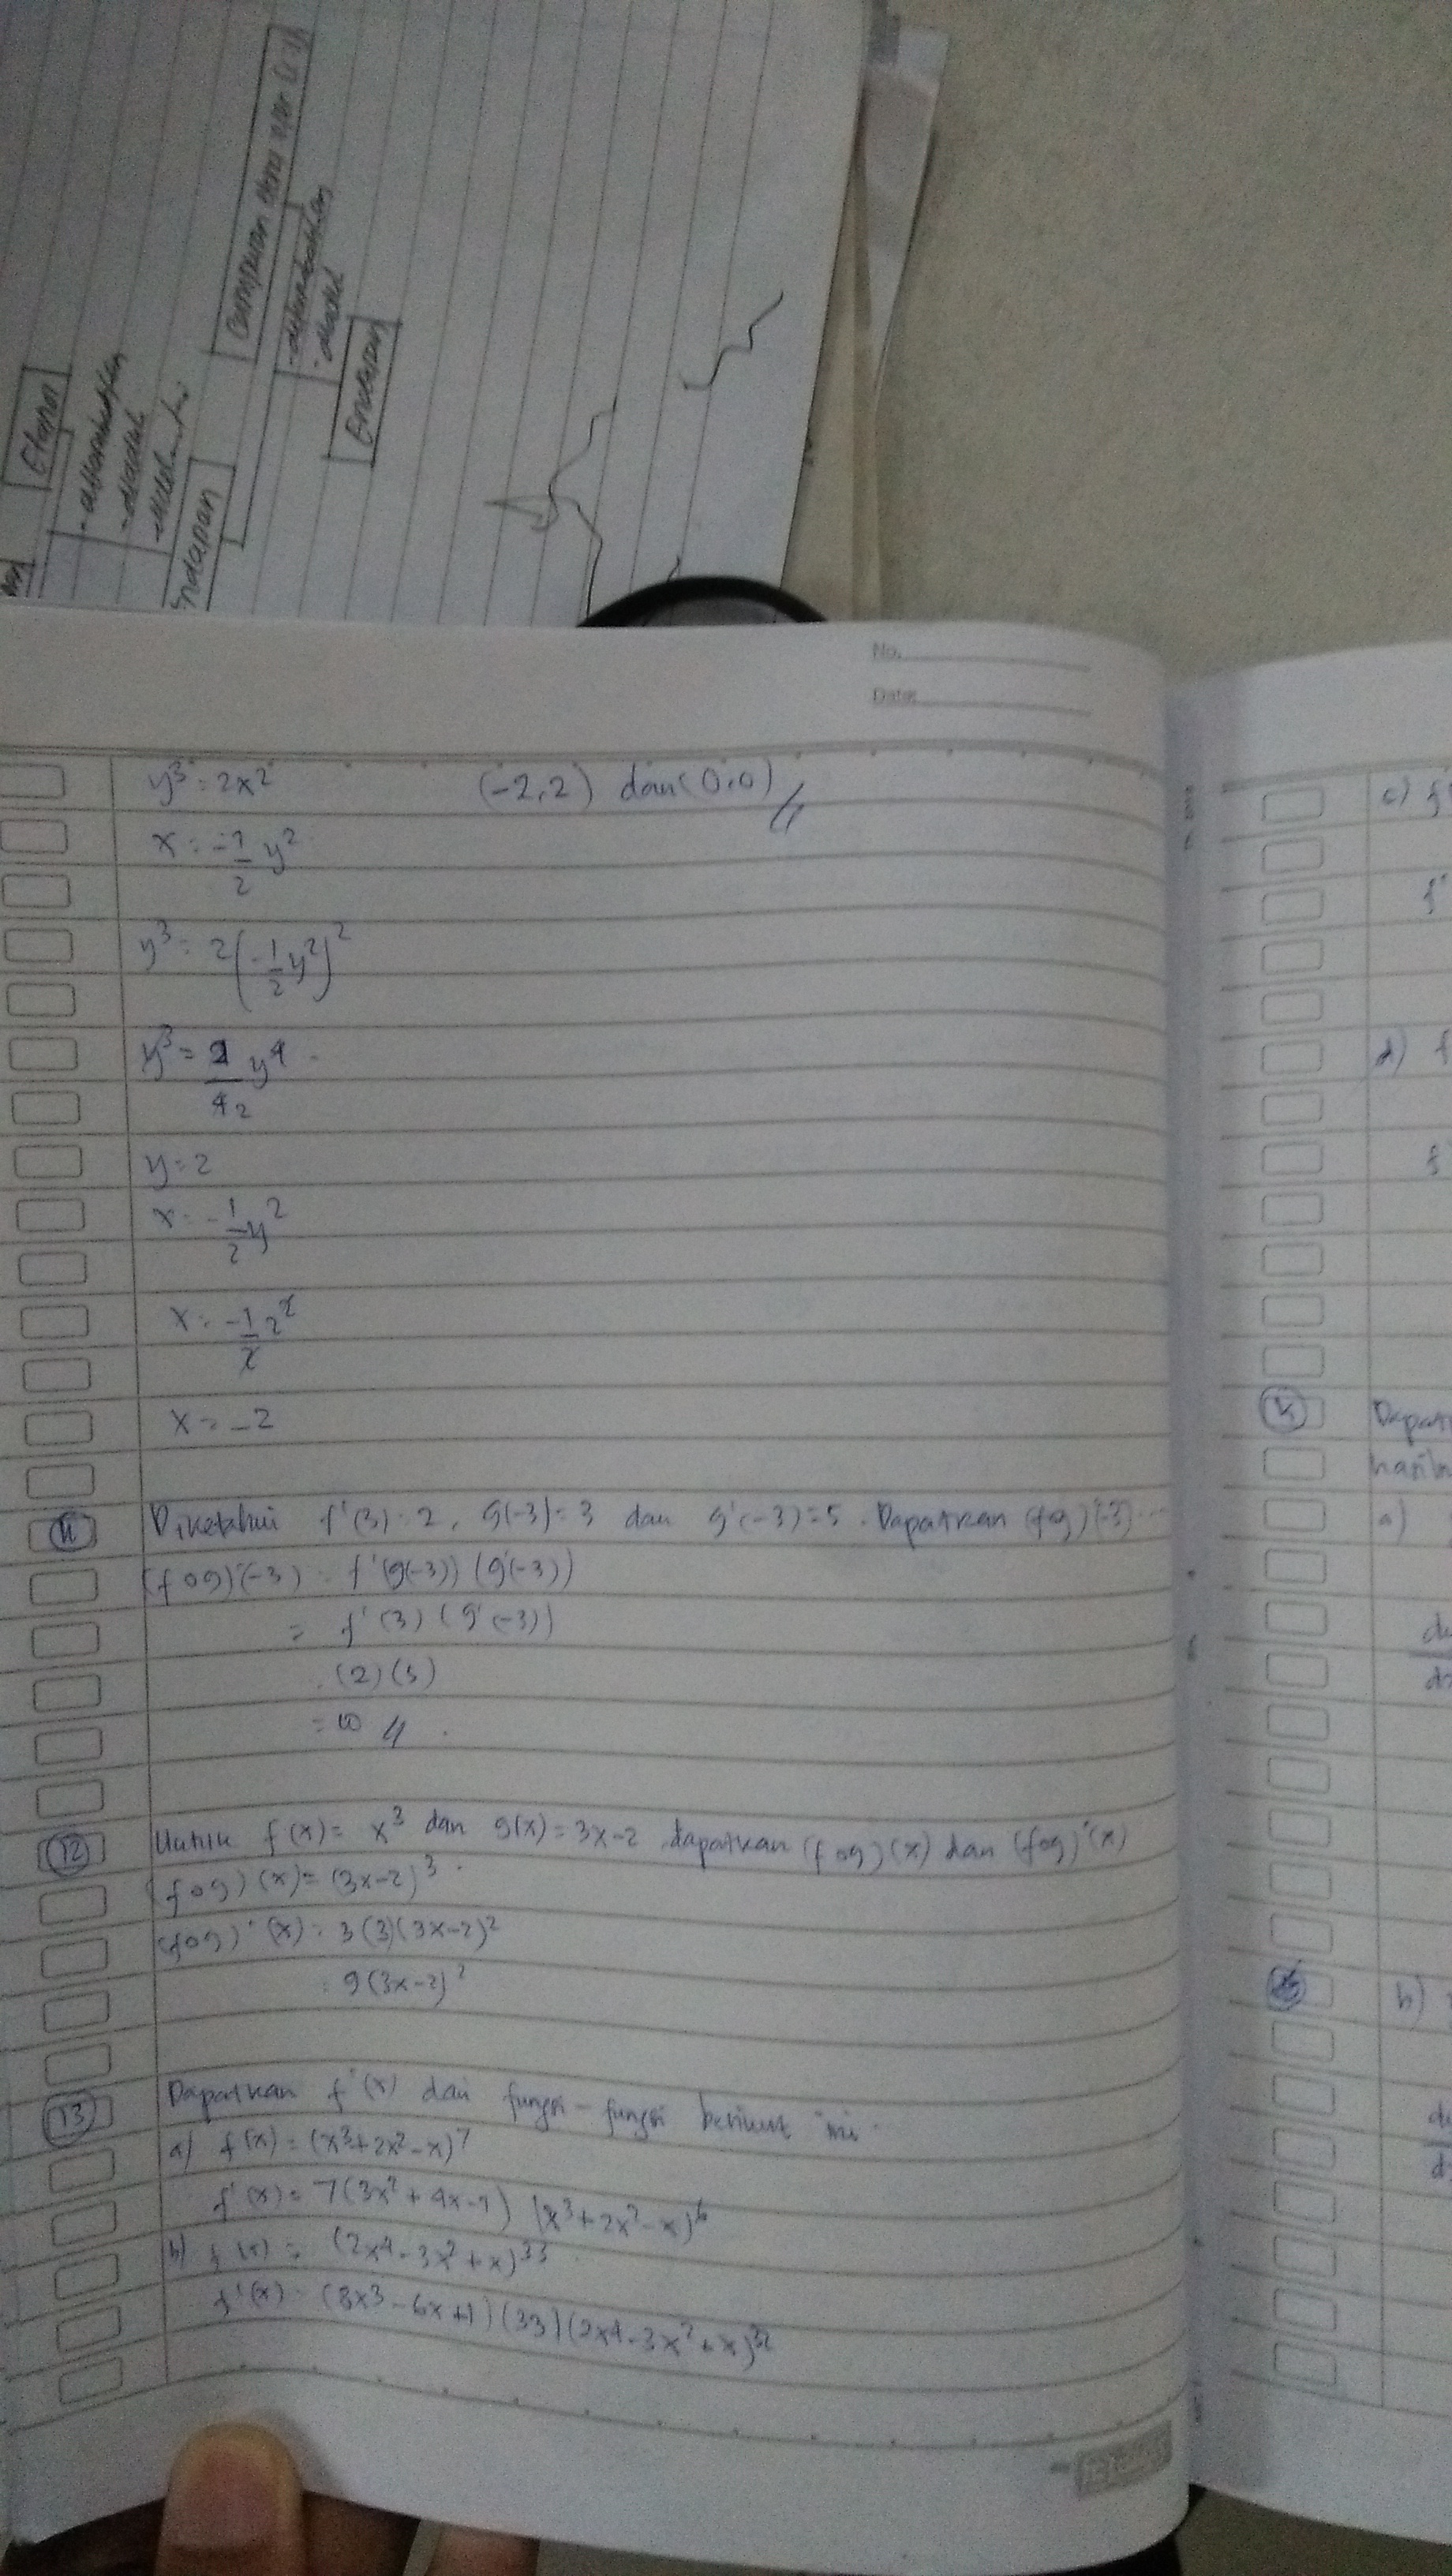 Etanol
- ditambahkan
- diaduk
Endapan
- ditambahkan
- diaduk
Endapan
No.
Date
y³ = 2x²
(-2,2) dan (0,0)
x = -1/2 y²
y³ = 2(-1/2 y²)²
y³ = 2/4 2 y⁴
y = 2
x = -1/2 y²
x = -1/2 2²
x = -2
11 Diketahui f'(3) = 2, g(-3) = 3 dan g'(-3) = 5. Dapatkan (fog)'(-3) ...
(fog)'(-3) = f'(g(-3)) (g'(-3))
= f'(3) (g'(-3))
= (2)(5)
= 10
12 Untuk f(x) = x³ dan g(x) = 3x-2 dapatkan (fog)(x) dan (fog)'(x)
(fog)(x) = (3x-2)³
(fog)'(x) = 3(3)(3x-2)²
= 9(3x-2)²
13 Dapatkan f'(x) dari fungsi-fungsi berikut ini.
a) f(x) = (x³+2x²-x)⁷
f'(x) = 7(3x²+4x-1) (x³+2x²-x)⁶
b) f(x) = (2x⁴-3x²+x)³³
f'(x) = (8x³-6x+1)(33)(2x⁴-3x²+x)³²
c) f'
f'
d) f
f
a)
b)